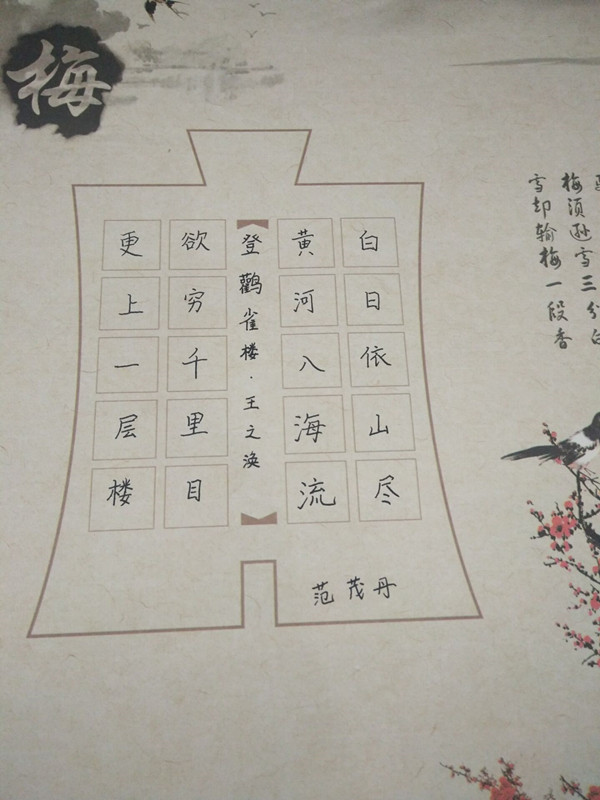 梅
梅须逊雪三分白
雪却输梅一段香
白日依山尽
黄河入海流
登鹳雀楼·王之涣
欲穷千里目
更上一层楼
范茂丹